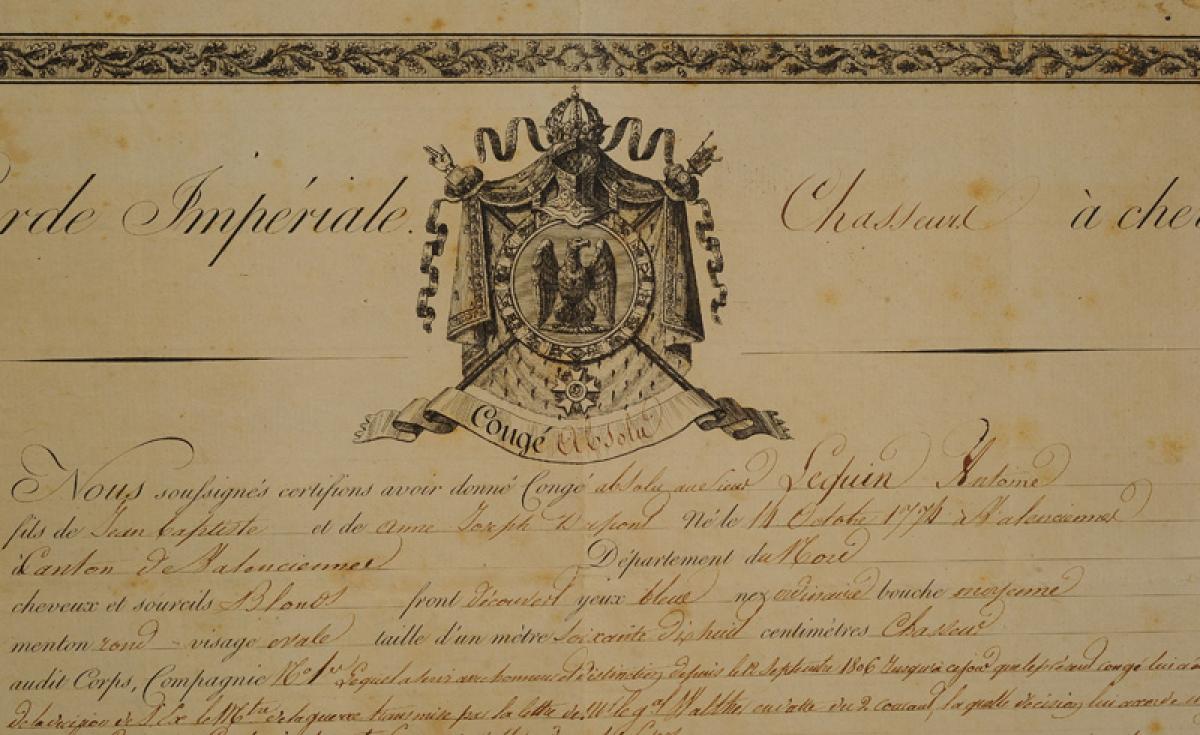 rde Impériale. Chasseurs à che
Congé Absolu
Nous soussignés certifions avoir donné Congé absolu au sieur Lequin Antoine
fils de Jean baptiste et de anne Joseph Dupont Né le 14 Octobre 1774 à Valenciennes
Canton de Valenciennes Département du Nord
cheveux et sourcils Blonds front découvert yeux bleue nez ordinaire bouche moyenne
menton rond visage ovale taille d'un mètre soixante dix huit centimètres Chasseur
audit Corps, Compagnie No 1er Lequel a servi avec honneur et distinction depuis le 12 Septembre 1806 Jusqu'à ce jour que le présent congé lui a
de la guerre transmise par la lettre de Mr le gal Walther en date du 2 courant, la quelle décision lui accorde